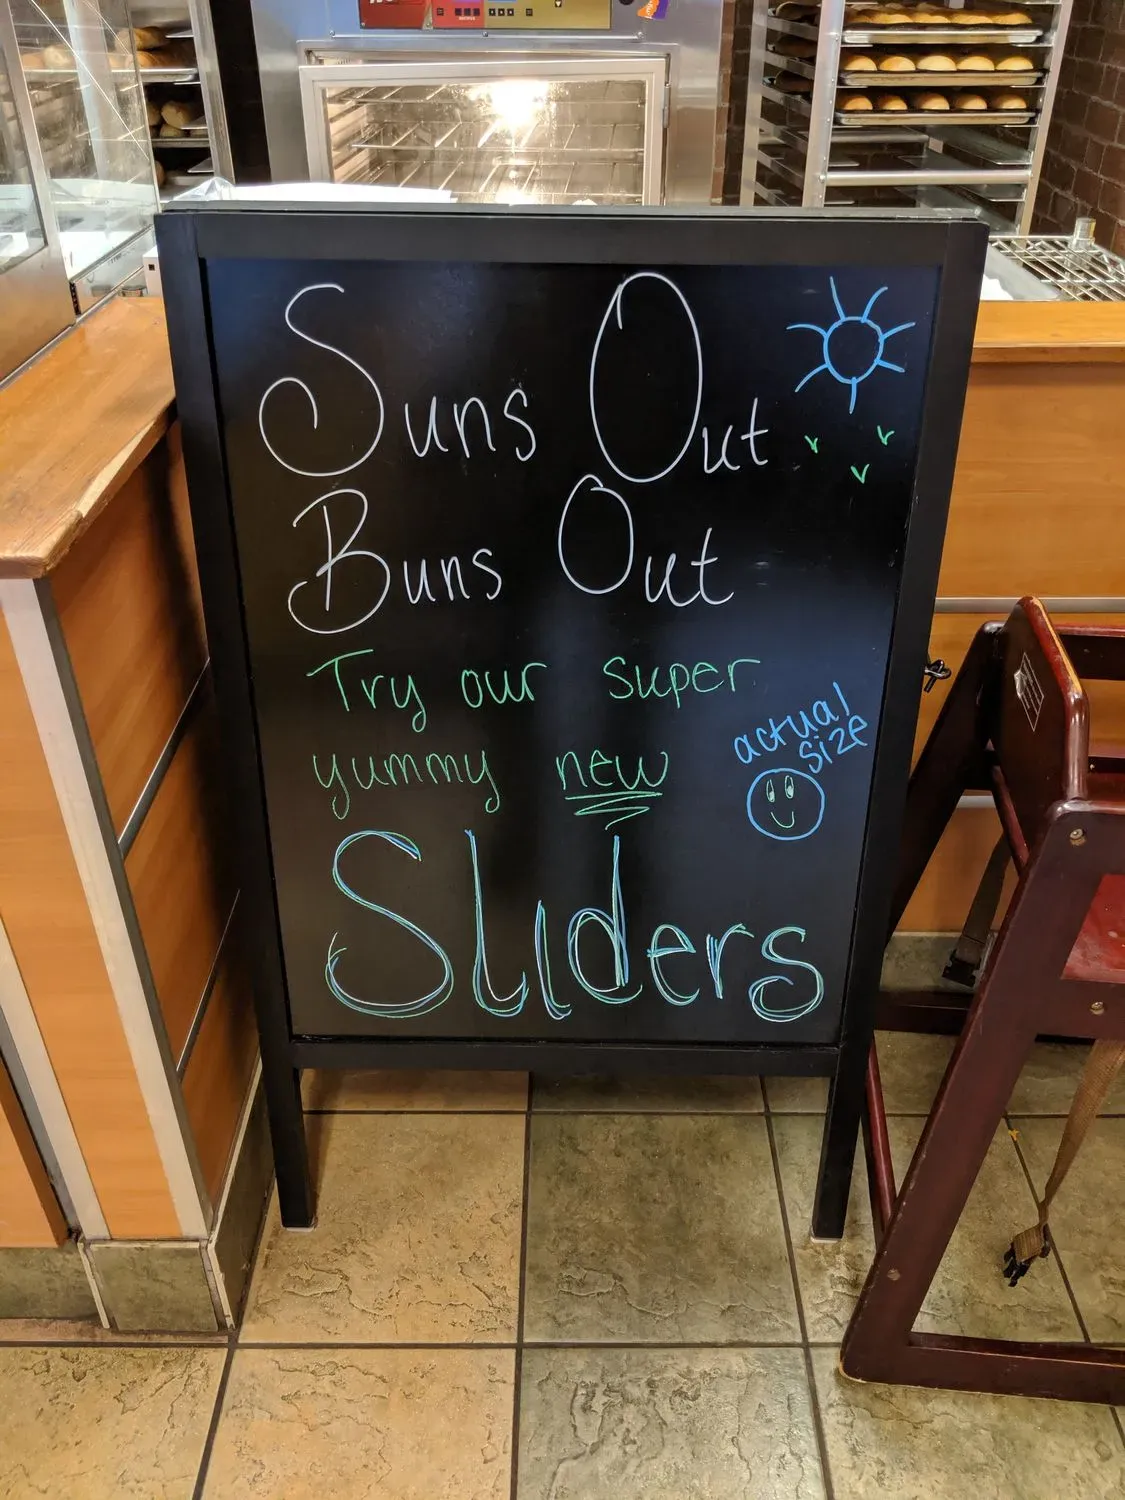 Suns Out
Buns Out
Try our super
yummy new
actual
size
Sliders